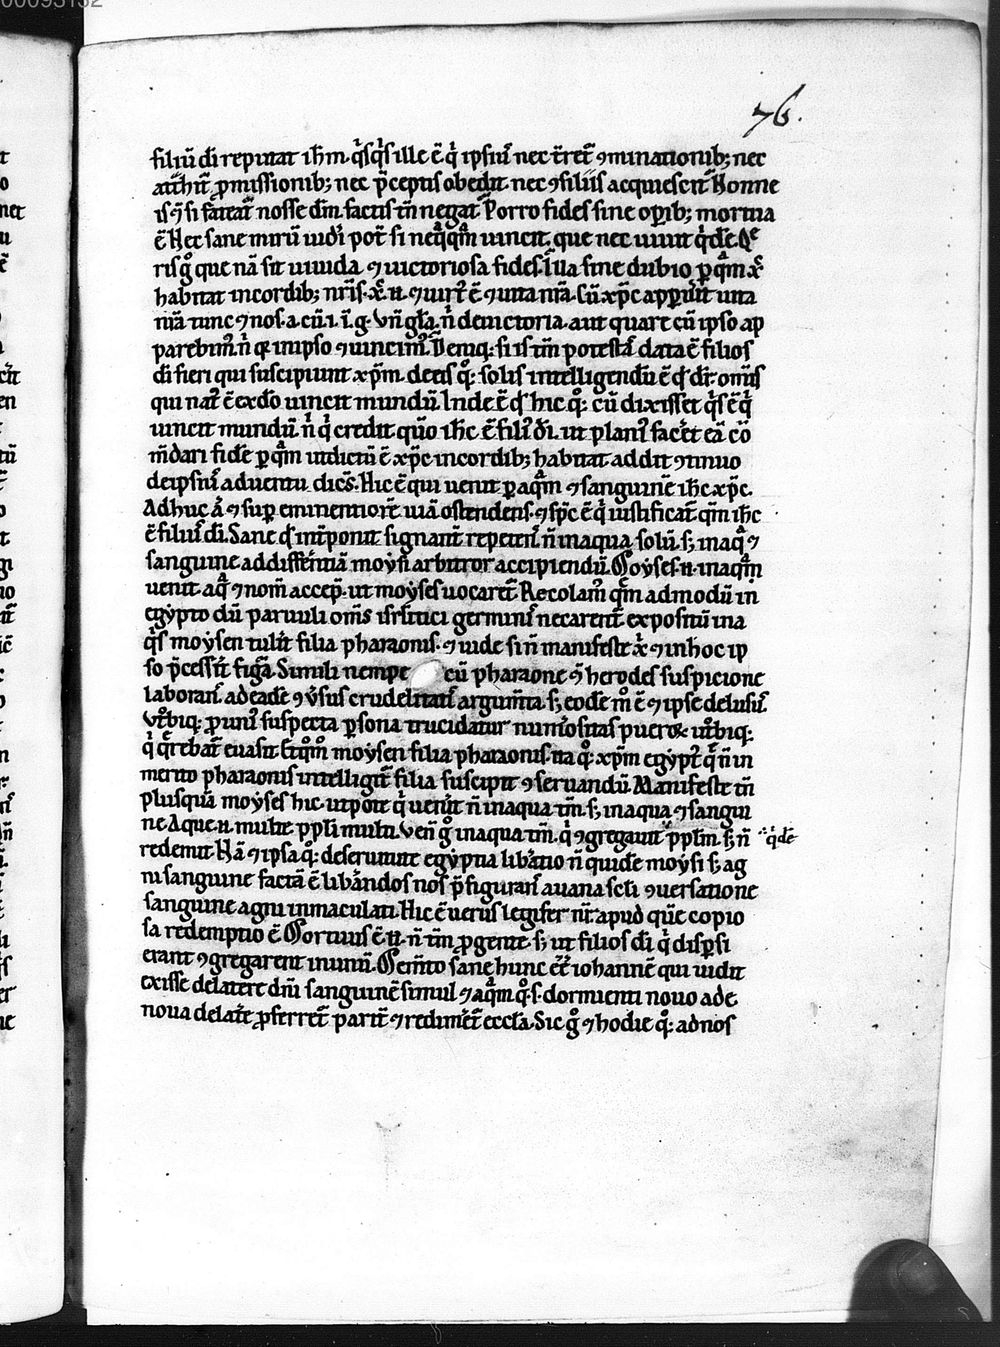 00095132
76.
filiū dī reputat ih̄m. q̇sq̇s ille ē q̇ ipsiꝰ nec t̄ret̄ ꝯminationibꝫ nec
attͣhit̄ ꝓmissionibꝫ nec p̄ceptis obedit. nec ꝯsiliis acquiescit̄ Nonne
is ⁊ si fateat̄ nosse dm̄. factis tn̄ negat Porro fides sine oꝑibꝫ mortua
ē Nec sane mirū uidi pot̄ si neq̄q̄m uincit. que nec uiuit q̇dē. Qͤ
ris g̊ que nā sit uiuida ⁊ uictoriosa fides. Illa sine dubio ꝑ qͣm xp̄
habitat in cordibꝫ nr̄is. xp̄ n̄. ⁊ uirtꝰ ē ⁊ uita nr̄a. Cū xp̄c apparuit uita
nr̄a tunc ⁊ nos. a. cū. i. ī. g. Vn̄ gl̄a. n̄ de uictoria. aut quare cū ipso ap
parebimꝰ. n̄ qꝛ in ipso ⁊ uincimꝰ. Deniqꝫ si is tm̄ potestas data ē filios
dī fieri qui suscipiunt xp̄m. de eis qͦꝫ solis intelligendū ē qd̄ dr̄. omīs
qui natꝰ ē ex dō uincit mundū. Inde ē qd̄ hic qͦꝫ cū dixisset q̇s ē q̇
uincit mundū. n̄ q̇ credit qm̄ ih̄c ē filiꝰ dī. ut planiꝰ facet eā cō
m̄dari fidē ꝑ qͣm ut dictū ē xp̄c in cordibꝫ habitat addit ꝯtinuo
de ipsiꝰ aduentu dicēs. Hic ē qui uenit ꝑ aqͣm ⁊ sanguinē ih̄c xp̄c.
Adhuc ā ⁊ suꝑ eminentiorē uiā ostendens. ⁊ sp̄c ē q̇ iustificat qm̄ ih̄c
ē filiꝰ dī. Sane qd̄ int̄ponit signant̄ repetens n̄ in aqua solū sꝫ in aqͣ ⁊
sanguine ad differ̄ntiā moysi arbitror accipiendū. Moyses. n̄. in aqͣm
uenit aqͣ ⁊ nom̄ accep. ut moyses uocaret̄. Recolamꝰ qͣm admodū in
egypto dū paruuli om̄s isrlitici germinis necarent̄ expositū in a
q̇s moysen tulit filia pharaonis. ⁊ uide si n̄ manifeste xp̄c ⁊ in hoc ip
so p̄cessit figͣa. Simili nempe cū pharaone ⁊ herodes suspicione
laborans ad eadē ⁊ ꝟsus crudelitatis argumt̄a. sꝫ eodē mͦ ē ⁊ ipse delusꝰ.
Vt̄biqꝫ pro uniꝰ suspecta ꝑsona trucidatur num̄ositas pueroꝝ ut̄biqꝫ
q̇ q̄rebat̄ euasit. Et qͦmͦ moysen filia pharaonis. ita qͦꝫ xp̄m egyptꝰ q̄ n̄ in
merito pharaonis intelligit̄ filia suscipit ⁊ seruandū. Manifeste tn̄
plusquā moyses hic. utpote q̇ uenit n̄ in aqua tm̄. sꝫ in aqua ⁊ sangui
ne. Aque. n̄. multe ppl̄i multi. Ven̄ g̊ in aqua tm̄. q̇ ꝯgregauit ppl̄m. sꝫ n̄ q̇dē
redemit. Nā ⁊ ipsa qͦꝫ de seruitute egyptia lib̄atio n̄ quidē moysi sꝫ ag
ni sanguine factā ē lib̄andos nos p̄figurans a uana scl̄i ꝯuersatione
sanguine agni inmaculati. Hic ē uerus legifer nr̄. apud quē copio
sa redemptio ē. Mortuus ē. n̄. n̄ tm̄ ꝓ gente. sꝫ ut filios dī q̇ disꝑsi
erant ꝯgregarent in unū. Mem̄to sane hunc ēē iohannē qui uidit
exisse de latere dn̄i sanguinē simul ⁊ aqͣm qͦ. s. dormienti nouo ade
noua de latē ꝓferret̄ parit̄ ⁊ redimēt̄ eccl̄a. Sic g̊ ⁊ hodie qͦꝫ ad nos